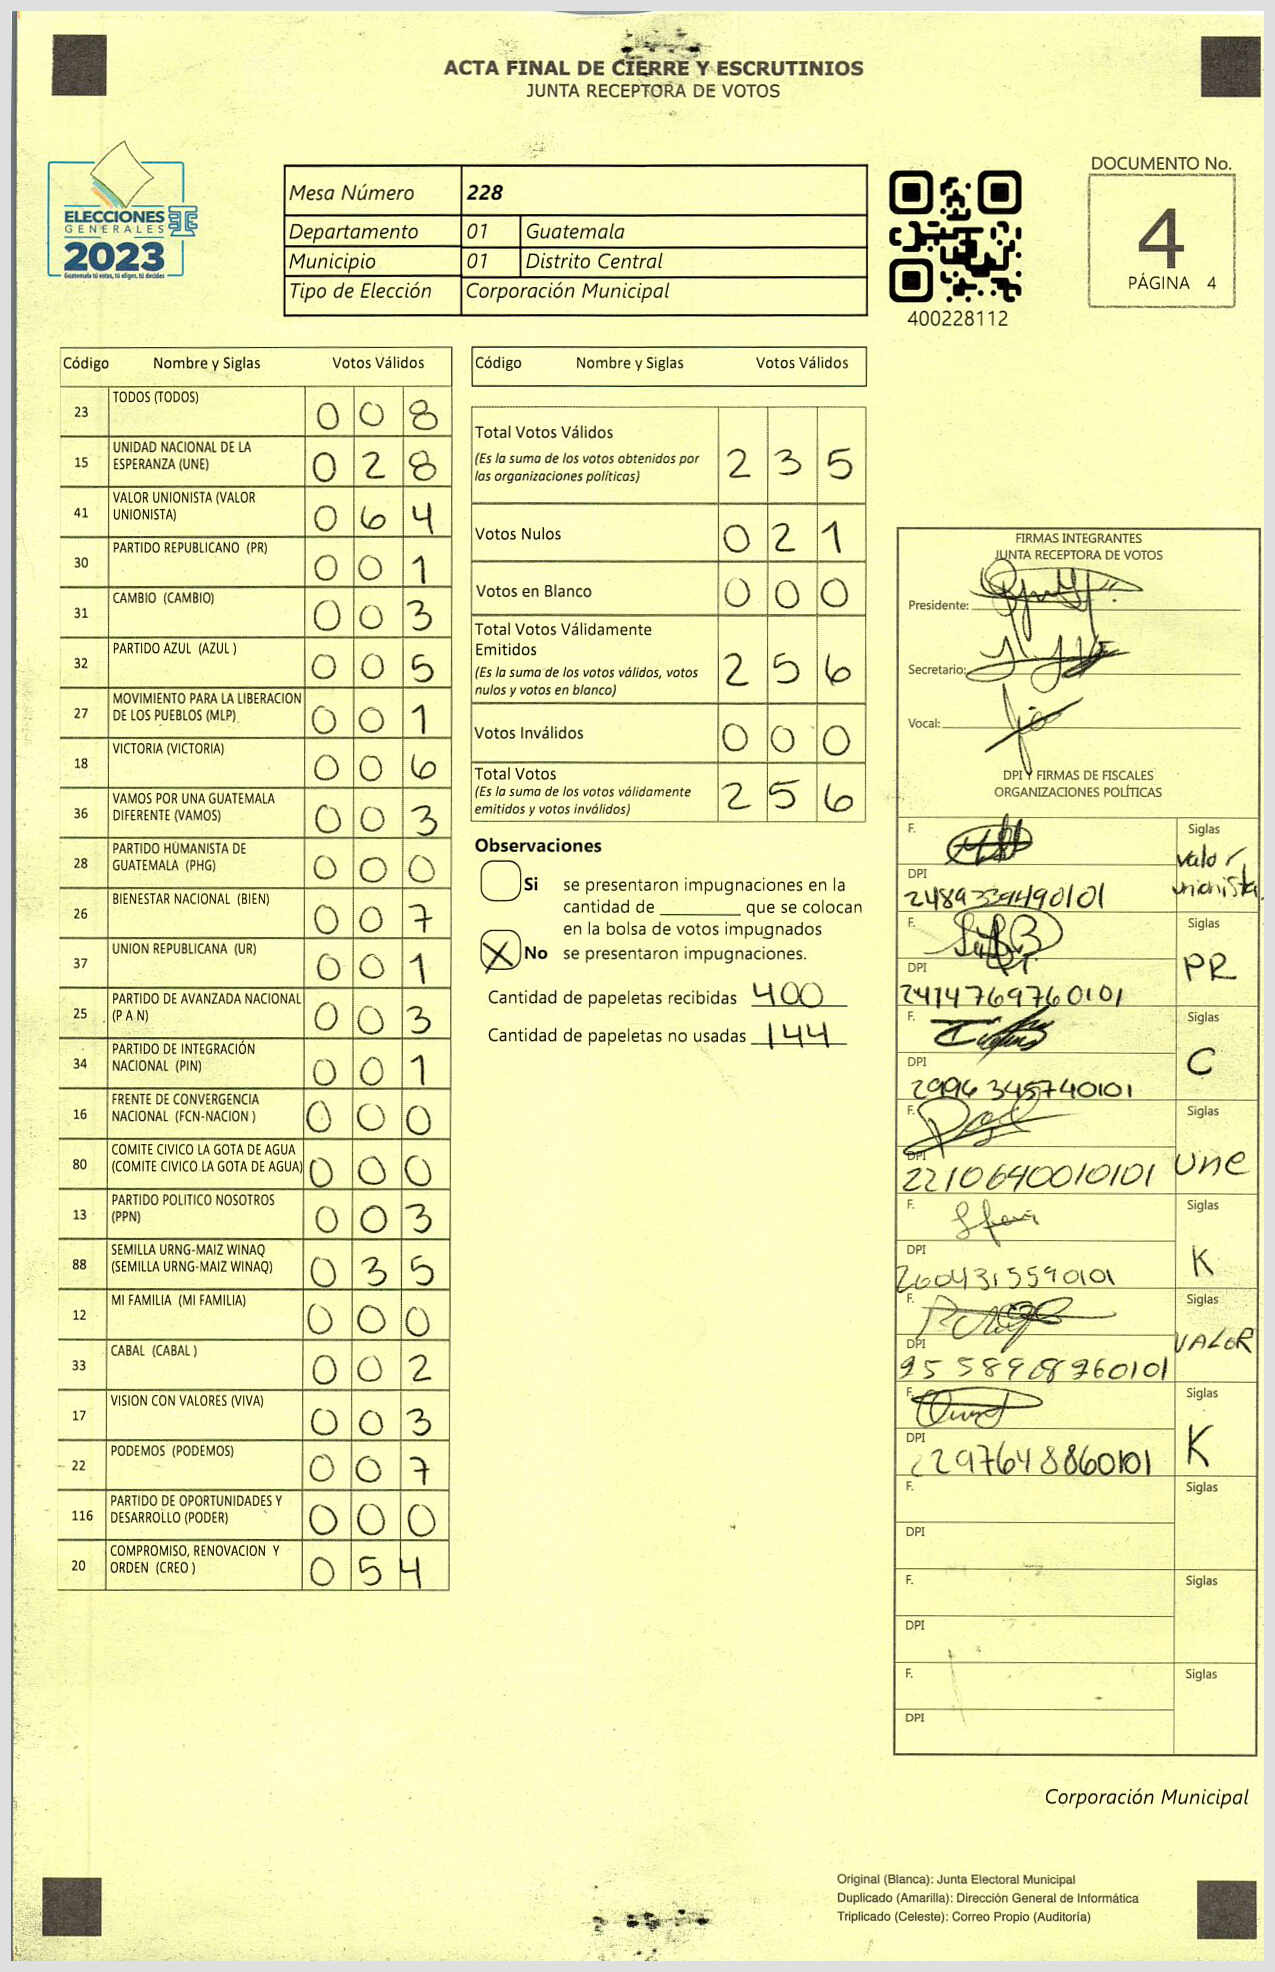 ACTA FINAL DE CIERRE Y ESCRUTINIOS
JUNTA RECEPTORA DE VOTOS
ELECCIONES
GENERALES
2023
Guatemala tú votas, tú eliges, tú decides
Mesa Número 228
Departamento 01 Guatemala
Municipio 01 Distrito Central
Tipo de Elección Corporación Municipal
400228112
DOCUMENTO No.
4
PÁGINA 4
Código Nombre y Siglas Votos Válidos
23 TODOS (TODOS) 0 0 8
15 UNIDAD NACIONAL DE LA
ESPERANZA (UNE) 0 2 8
41 VALOR UNIONISTA (VALOR
UNIONISTA) 0 6 4
30 PARTIDO REPUBLICANO (PR) 0 0 1
31 CAMBIO (CAMBIO) 0 0 3
32 PARTIDO AZUL (AZUL ) 0 0 5
27 MOVIMIENTO PARA LA LIBERACION
DE LOS PUEBLOS (MLP) 0 0 1
18 VICTORIA (VICTORIA) 0 0 6
36 VAMOS POR UNA GUATEMALA
DIFERENTE (VAMOS) 0 0 3
28 PARTIDO HUMANISTA DE
GUATEMALA (PHG) 0 0 0
26 BIENESTAR NACIONAL (BIEN) 0 0 7
37 UNION REPUBLICANA (UR) 0 0 1
25 PARTIDO DE AVANZADA NACIONAL
(P A N) 0 0 3
34 PARTIDO DE INTEGRACIÓN
NACIONAL (PIN) 0 0 1
16 FRENTE DE CONVERGENCIA
NACIONAL (FCN-NACION ) 0 0 0
80 COMITE CIVICO LA GOTA DE AGUA
(COMITE CIVICO LA GOTA DE AGUA) 0 0 0
13 PARTIDO POLITICO NOSOTROS
(PPN) 0 0 3
88 SEMILLA URNG-MAIZ WINAQ
(SEMILLA URNG-MAIZ WINAQ) 0 3 5
12 MI FAMILIA (MI FAMILIA) 0 0 0
33 CABAL (CABAL ) 0 0 2
17 VISION CON VALORES (VIVA) 0 0 3
22 PODEMOS (PODEMOS) 0 0 7
116 PARTIDO DE OPORTUNIDADES Y
DESARROLLO (PODER) 0 0 0
20 COMPROMISO, RENOVACION Y
ORDEN (CREO ) 0 5 4
Código Nombre y Siglas Votos Válidos
Total Votos Válidos
(Es la suma de los votos obtenidos por
las organizaciones políticas) 2 3 5
Votos Nulos 0 2 1
Votos en Blanco 0 0 0
Total Votos Válidamente
Emitidos
(Es la suma de los votos válidos, votos
nulos y votos en blanco) 2 5 6
Votos Inválidos 0 0 0
Total Votos
(Es la suma de los votos válidamente
emitidos y votos inválidos) 2 5 6
Observaciones
Si se presentaron impugnaciones en la
cantidad de ________ que se colocan
en la bolsa de votos impugnados
X No se presentaron impugnaciones.
Cantidad de papeletas recibidas 400
Cantidad de papeletas no usadas 144
FIRMAS INTEGRANTES
JUNTA RECEPTORA DE VOTOS
Presidente:
Secretario:
Vocal:
DPI Y FIRMAS DE FISCALES
ORGANIZACIONES POLÍTICAS
F. Siglas
Valor
unionista
DPI
F. Siglas
PR
DPI
2414769760101
F. Siglas
C
DPI
2996345740101
F. Siglas
une
DPI
2210640010101
F. Siglas
K
DPI
2604315590101
F. Siglas
VALOR
DPI
F. Siglas
K
DPI
2297648860101
F. Siglas
DPI
F. Siglas
DPI
F. Siglas
DPI
Corporación Municipal
Original (Blanca): Junta Electoral Municipal
Duplicado (Amarilla): Dirección General de Informática
Triplicado (Celeste): Correo Propio (Auditoría)